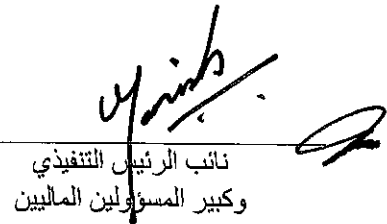 نائب الرئيس التنفيذي
وكبير المسؤولين الماليين